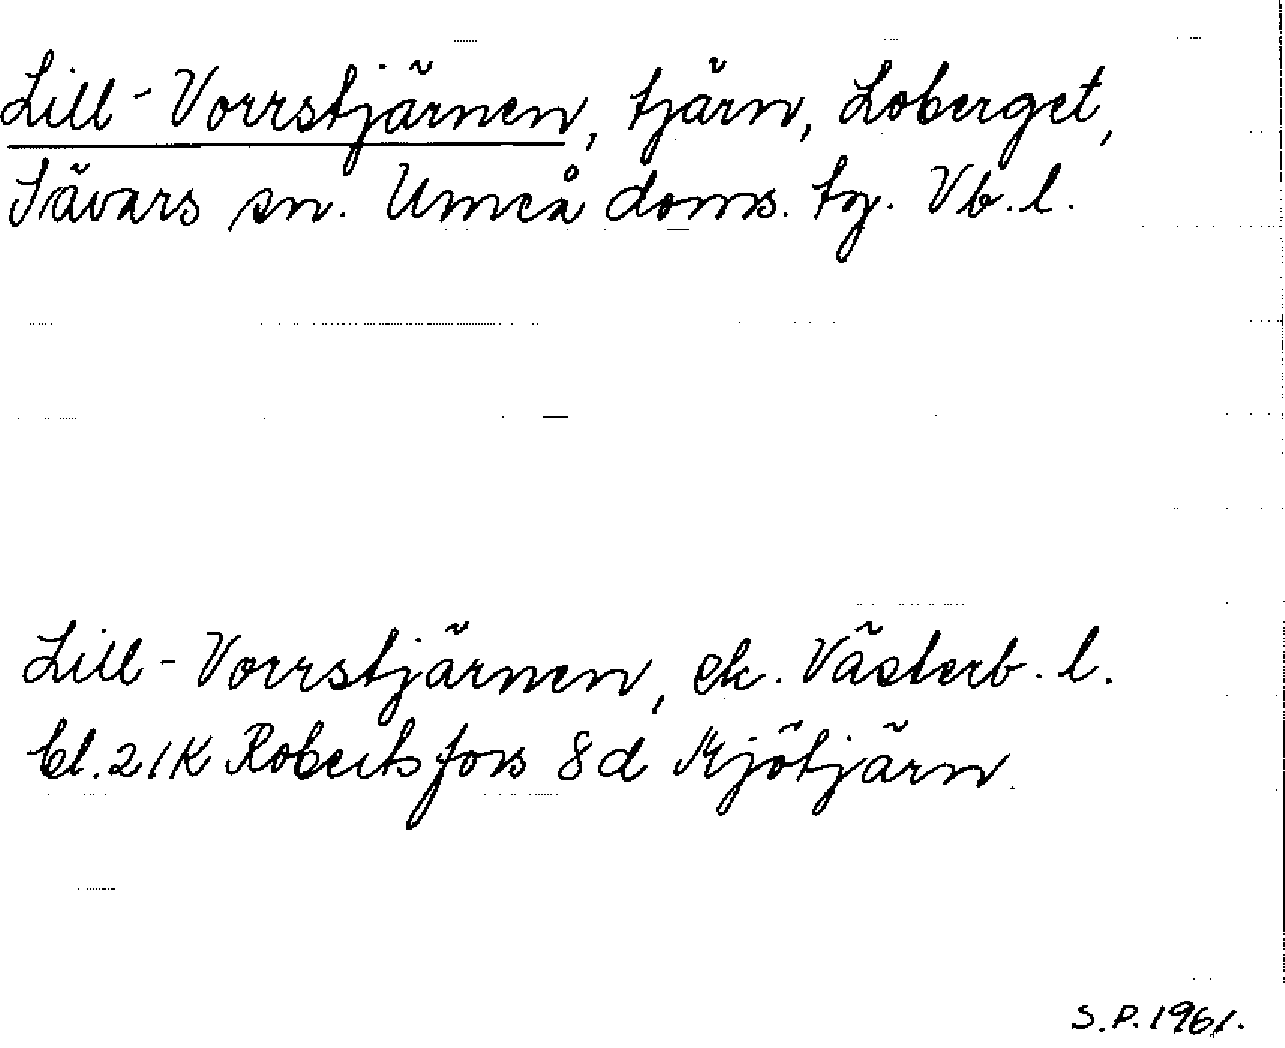 Lill-Vorrstjärnen, tjärn, Loberget,
Sävars sn. Umeå doms. tg. Vb.l.
Lill-Vorrstjärnen, ek. Västerb. l.
bl. 21K Robertsfors 8d Mjötjärn.
S.P. 1961.